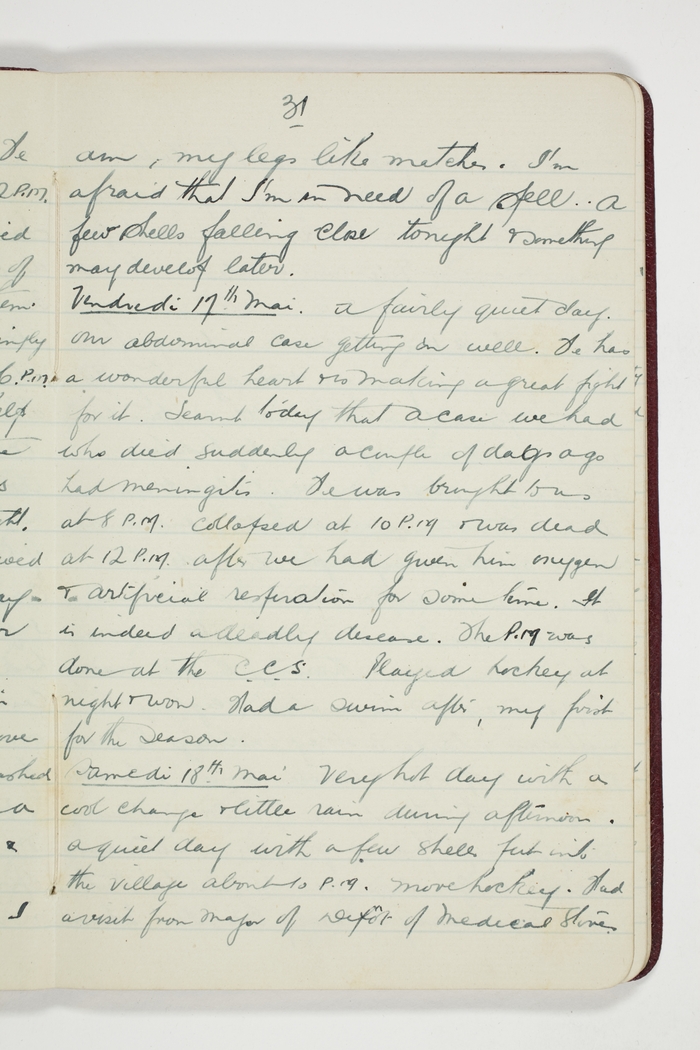 31
am, my legs like matches. I'm
afraid that I'm in need of a spell.. a
few shells falling close tonight & something
may develop later.
Vendredi 17th Mai. A fairly quiet day.
our abdominal case getting on well. He has
a wonderful heart & is making a great fight
for it. Learnt today that a case we had
who died suddenly a couple of days ago
had meningitis. He was brought to us
at 8 P.M. collapsed at 10 P.M & was dead
at 12 P.M. after we had given him oxygen
& artificial respiration for some time. It
is indeed a deadly disease. The P.M was
done at the C.C.S. Played hockey at
night & won. Had a swim after, my first
for the season.
Samedi 18th Mai Very hot day with a
cool change & little rain during afternoon.
a quiet day with a few shells put into
the village about 10 P.M. More hockey. Had
a visit from Major of Depôt of Medical Stores